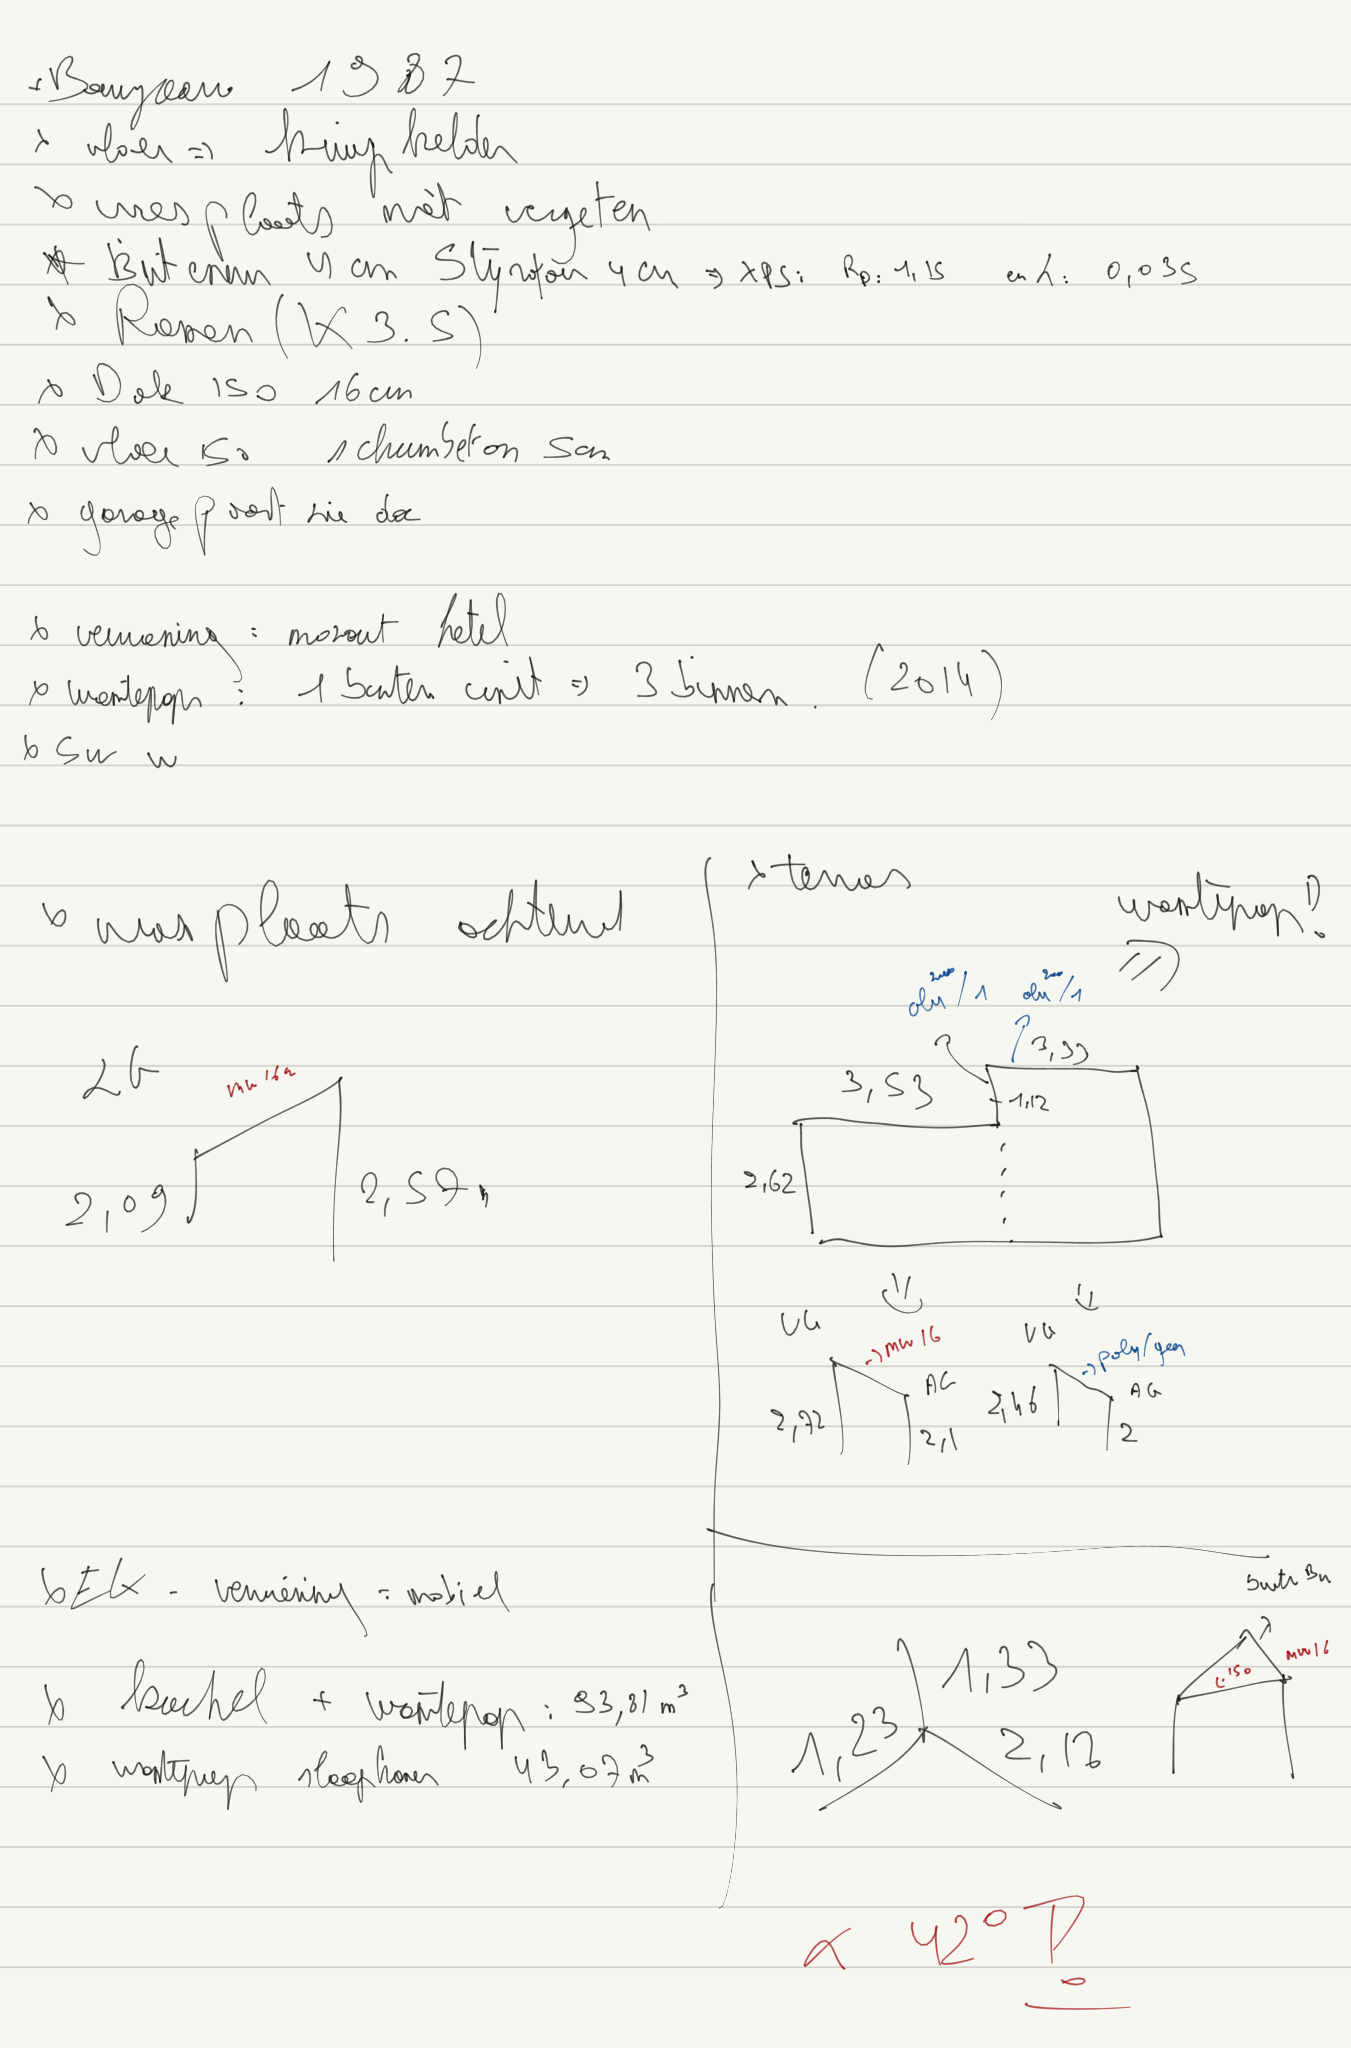 Bouwjaar 1987
x vloer => kruipkelder
x wasplaats niet vergeten
x Buitenm 4 cm Styrofoam 4 cm => XPS: Rp: 1,15 en λ: 0,035
x Ramen (K 3.5)
x Dak ISO 16cm
x vloer iso schuimbeton 5cm
x garagepoort zie doc
x verwarming: mazout ketel
x warmtepop: 1 buiten unit => 3 binnen. (2014)
x SWW
x wasplaats achteruit
LG
MW 16cm
2,09
2,57m
x terras
warmtepop!
alu/1 alu/1
3,33
3,53
1,12
2,62
VG
-> MW16
AG
2,72
2,1
VG
-> poly/geen
AG
2,46
2
x Elk - verwarming = mobiel
x kachel + warmtepop: 93,81 m³
x warmtepop slaapkamer 43,07 m³
1,33
1,23
2,13
MW16
iso
α 42°